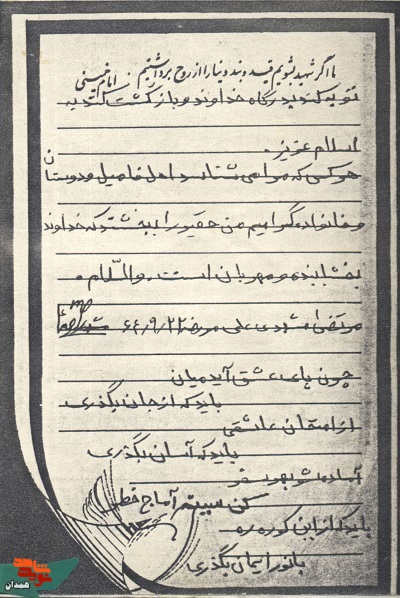 ما اگر شهید بشویم قید و بند دنیا را از روح برداشتیم امام خمینی
توبه کنید بدرگاه خداوند و بازگشت کنید به
اسلام عزیز.
هر کسی که مرا می شناسد اهل فامیل و دوستان
و خانواده گرامیم من حقیر را ببخشند که خداوند
بخشاینده و مهربان است. والسّلام.
مرتضی علی مرضا ۶۴/۹/۲۲
چون پای عشق آید میان
باید که از جان بگذری
از امتحان عاشقی
باید که آسان بگذری
آماده شو بهر سفر
کن سینه آماج خطر
باید که از این کوره ره
با نور ایمان بگذری
نوید شاهد
همدان